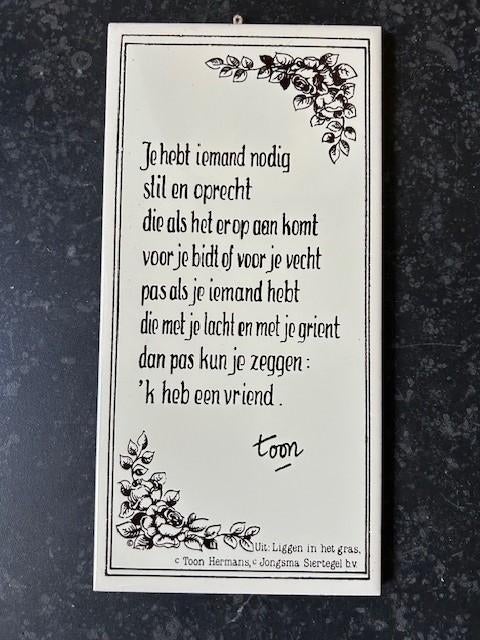 Je hebt iemand nodig
stil en oprecht
die als het erop aan komt
voor je bidt of voor je vecht
pas als je iemand hebt
die met je lacht en met je grient
dan pas kun je zeggen:
'k heb een vriend.
toon
Uit: Liggen in het gras.
© Toon Hermans, © Jongsma Siertegel b.v.